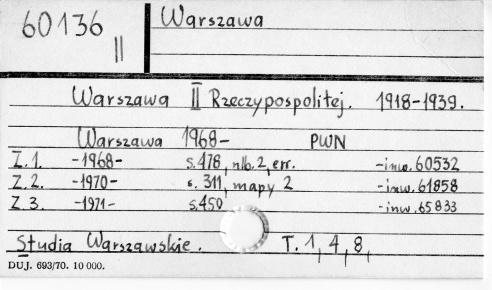 60136
II
Warszawa
Warszawa II Rzeczypospolitej. 1918-1939.
Warszawa 1968- PWN
Z.1. -1968- s.478, nlb.2, err. -inw.60532
Z.2. -1970- s.311, mapy 2 -inw.61858
Z.3. -1971- s.450 -inw.65833
Studia Warszawskie. T.1, 4, 8,
DUJ. 693/70. 10 000.